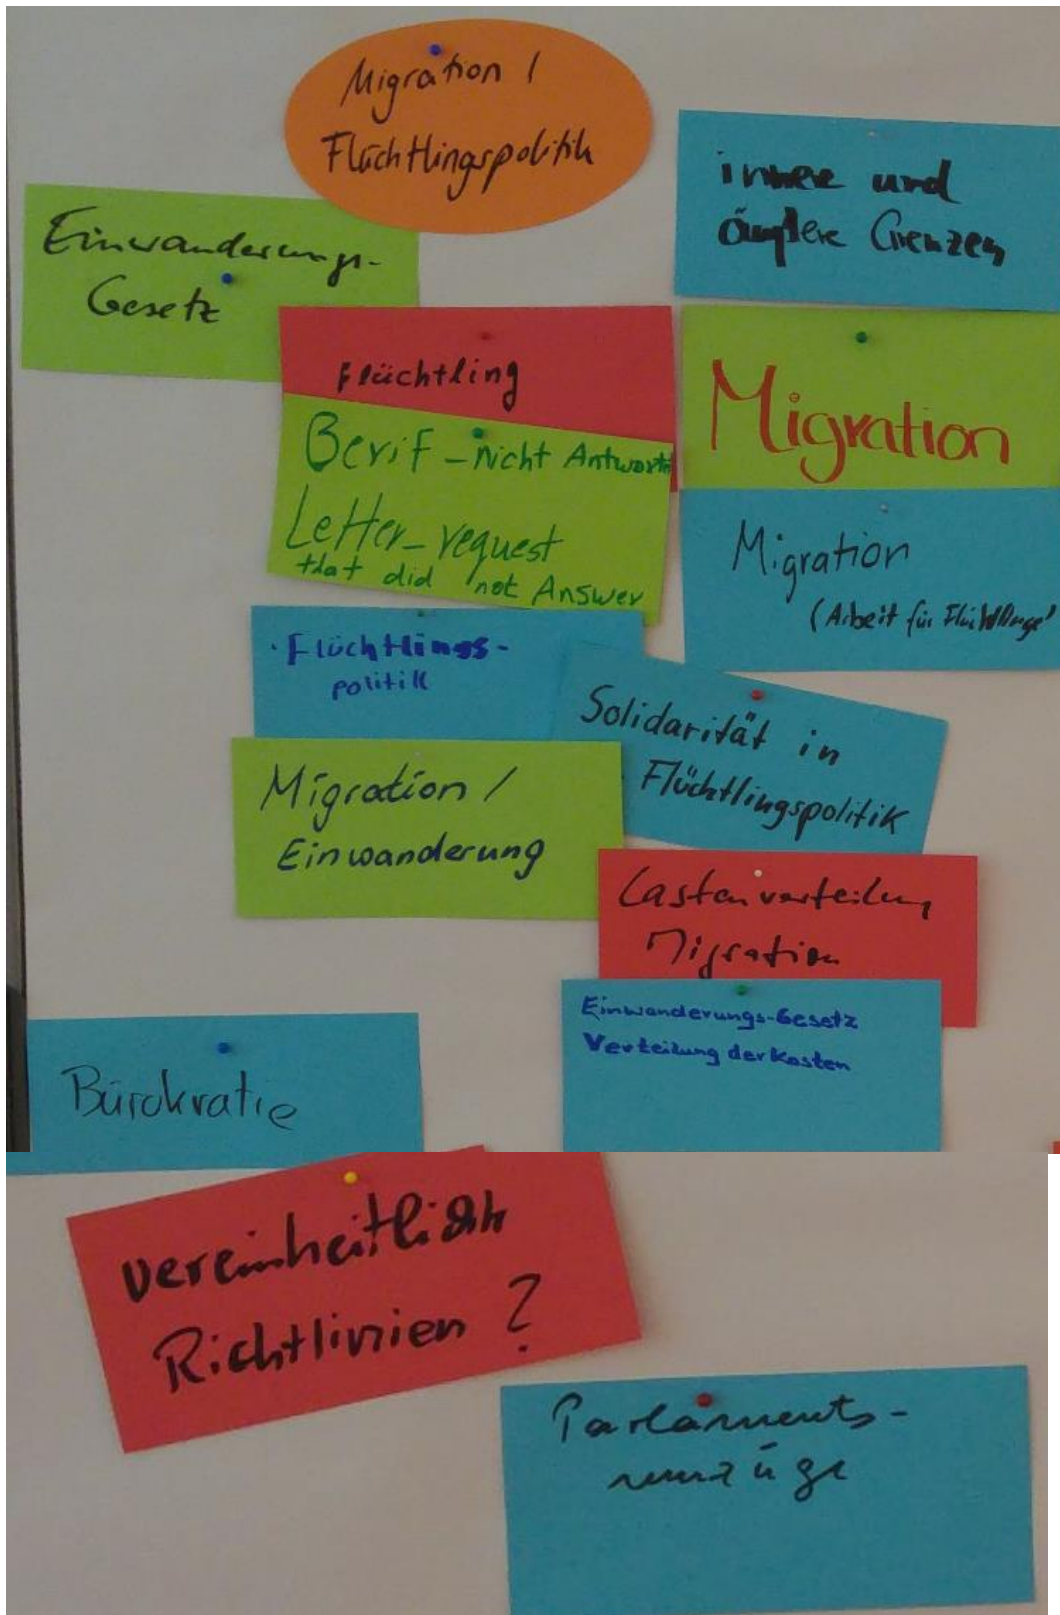 Migration /
Flüchtlingspolitik
innere und
äußere Grenzen
Einwanderungs-
Gesetz
Flüchtling
Migration
Berif - nicht Antwort
Letter - request
that did not Answer
Migration
(Arbeit für Flüchtlinge)
Flüchtlings-
politik
Solidarität in
Flüchtlingspolitik
Migration /
Einwanderung
Lastenverteilung
Migration
Einwanderungs-Gesetz
Verteilung der Kosten
Bürokratie
vereinheitlicht
Richtlinien ?
Parlaments-
umzüge